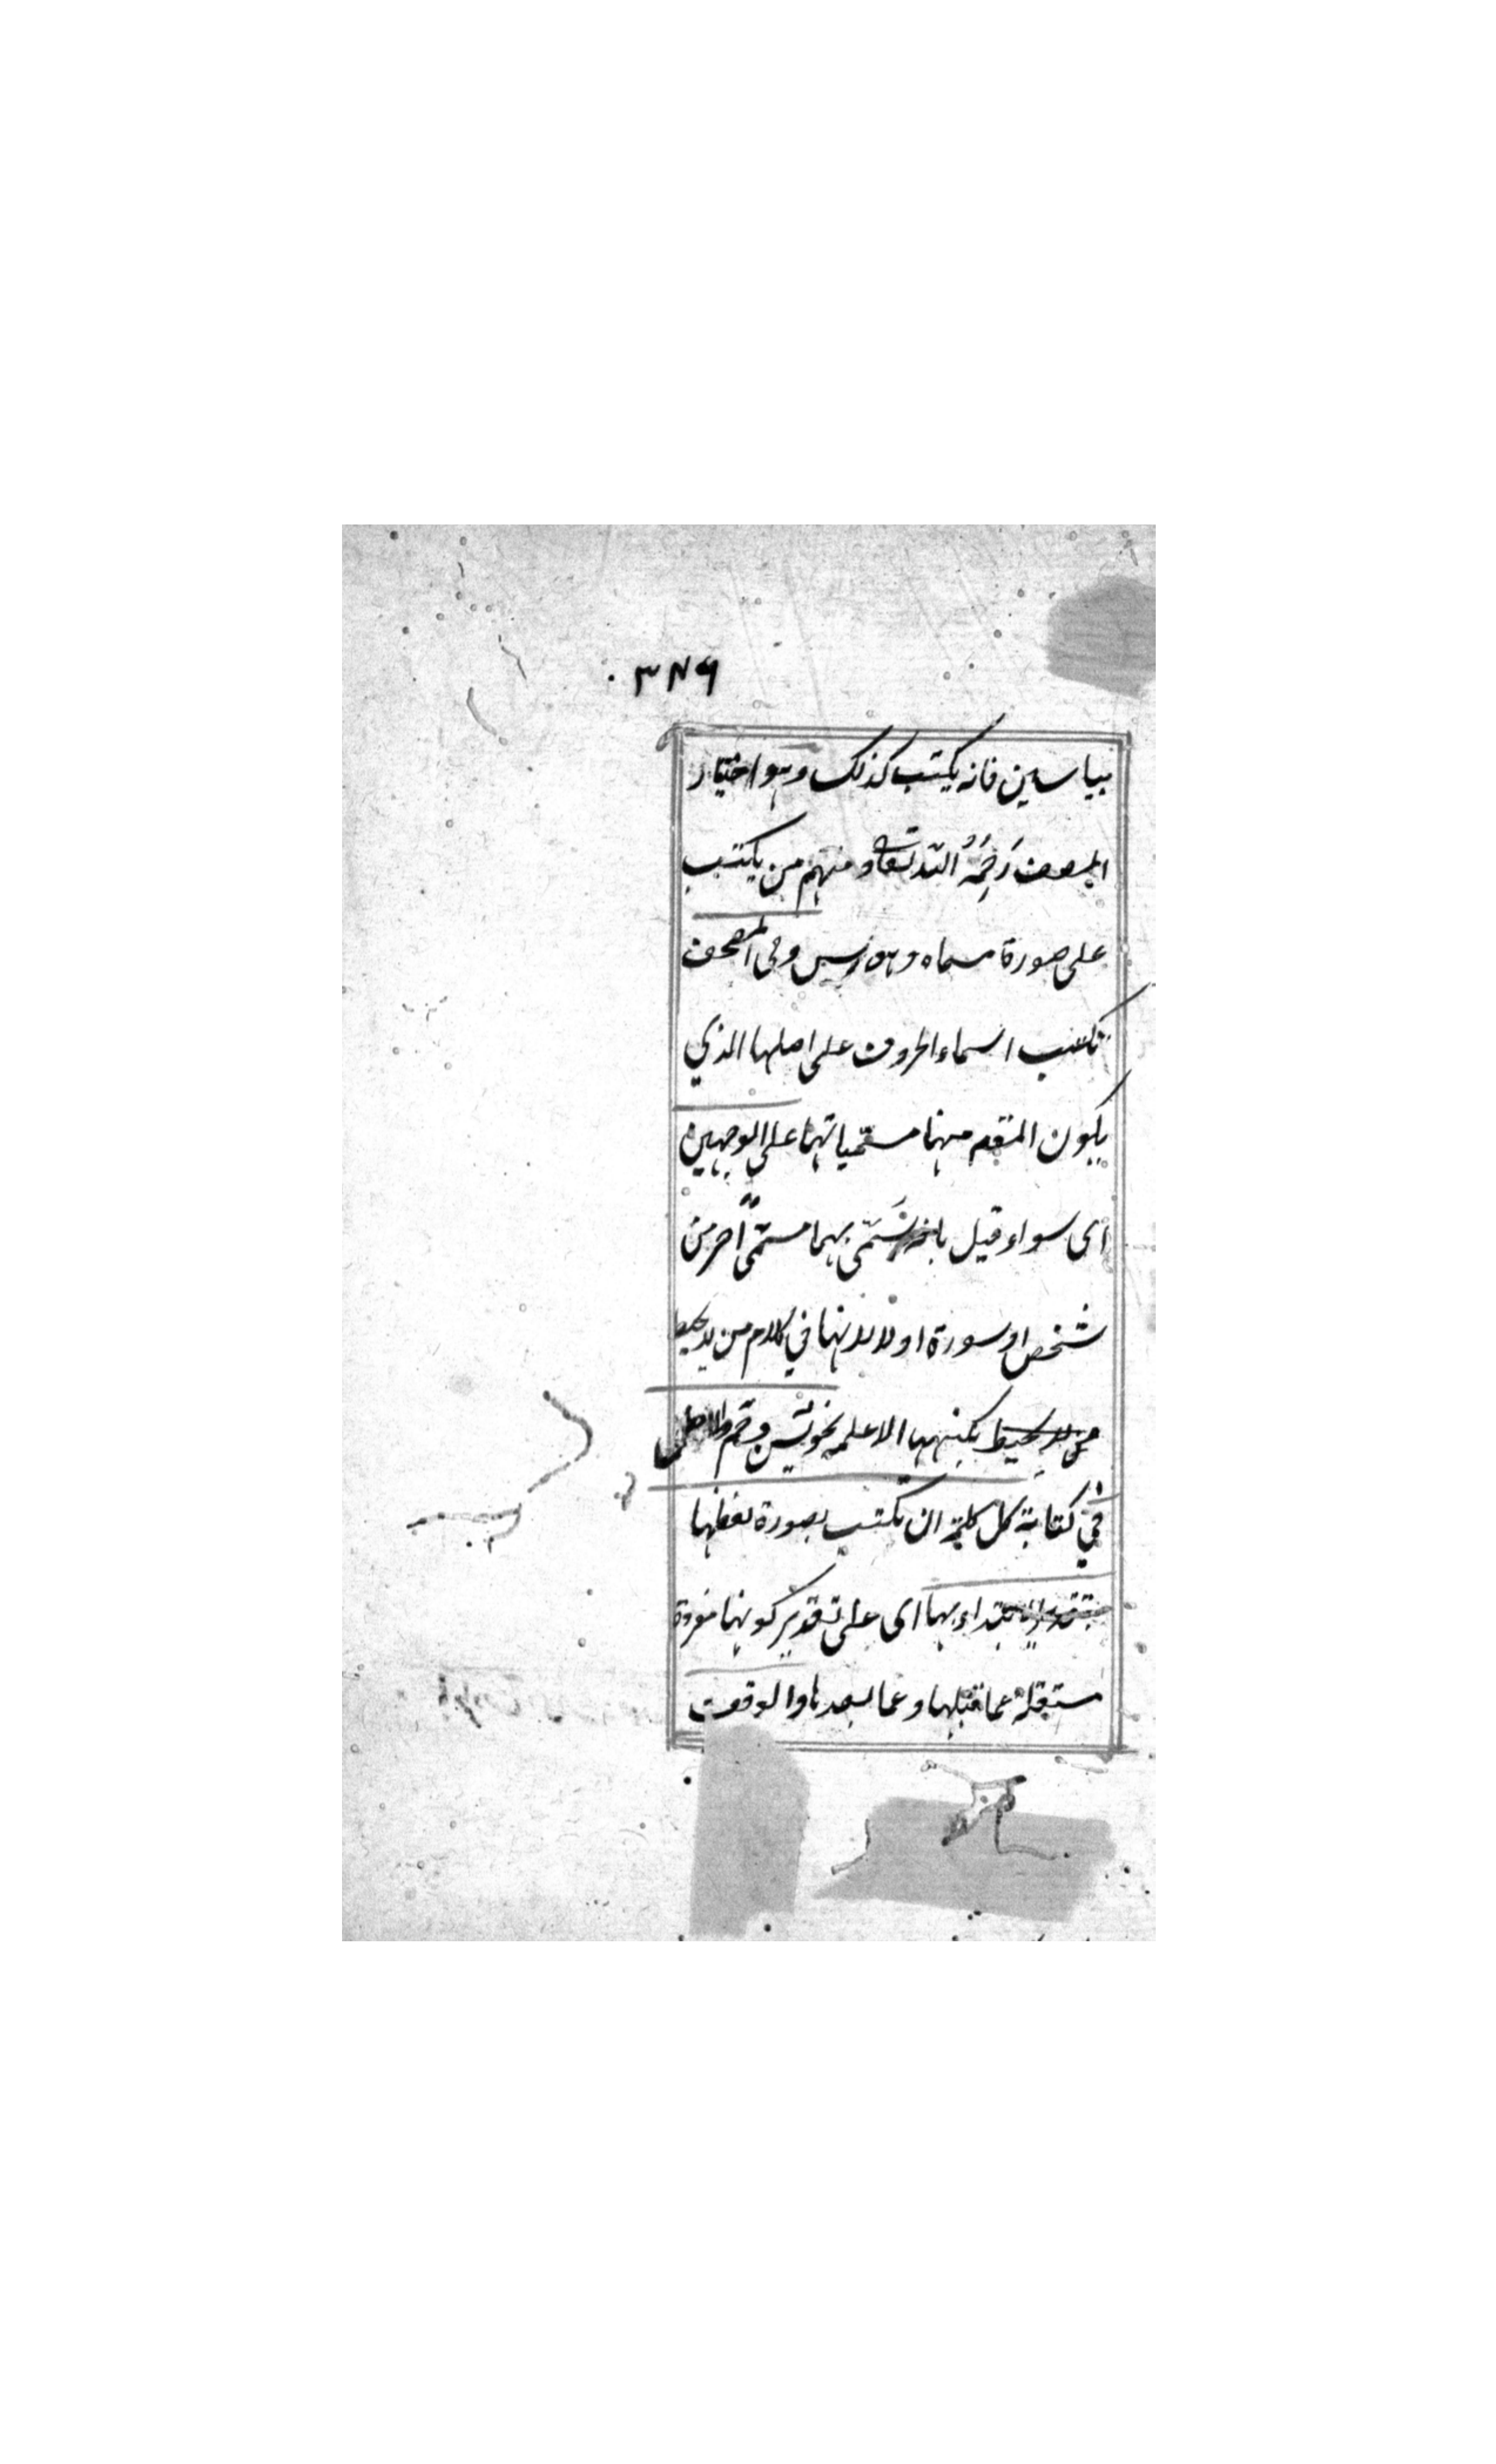 ۳۸۶
بياسين فانه يكتب كذلك وهو اختيار
المصنف رَحِمَهُ الله تعالى ومنهم من يكتب
على صورة مسماه وهو يس وفي المصحف
تكتب اسماء الحروف على اصلها الذي
يكون المتقدم منهما مسمّياتهما على الوجهين
اى سواء قيل بانه سَمّى بهما مسمًّى آخر من
شخص او سورة او لا لانها في كلام من لا يحيط
من لا يحيط بكنهها الا علمه نحو يس وحم والاصل
في كتابة كل كلمة ان تكتب بصورة لفظها
بتقدير الابتداء بها اى على تقدير كونها مفردة
مستقلة عما قبلها وعما بعدها والوقف